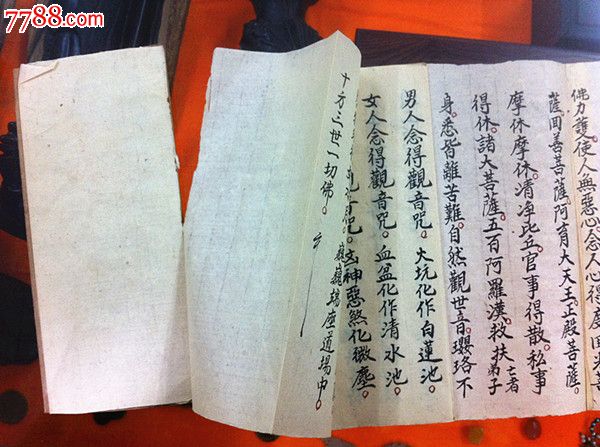 7788.com
佛力護。使人無惡心。念人心得度。回光菩
薩。回善菩薩。阿育大天王。正殿菩薩。
摩休摩休。清净比丘。官事得散。私事
得休。諸大菩薩。五百阿羅漢。救扶亡者弟子
身。悉皆離苦難。自然觀世音。瓔珞不
男人念得觀音咒。火坑化作白蓮池。
女人念得觀音咒。血盆化作清水池。
咒。凶神惡煞化微塵。
巍巍端座道場中。
十方三世一切佛。